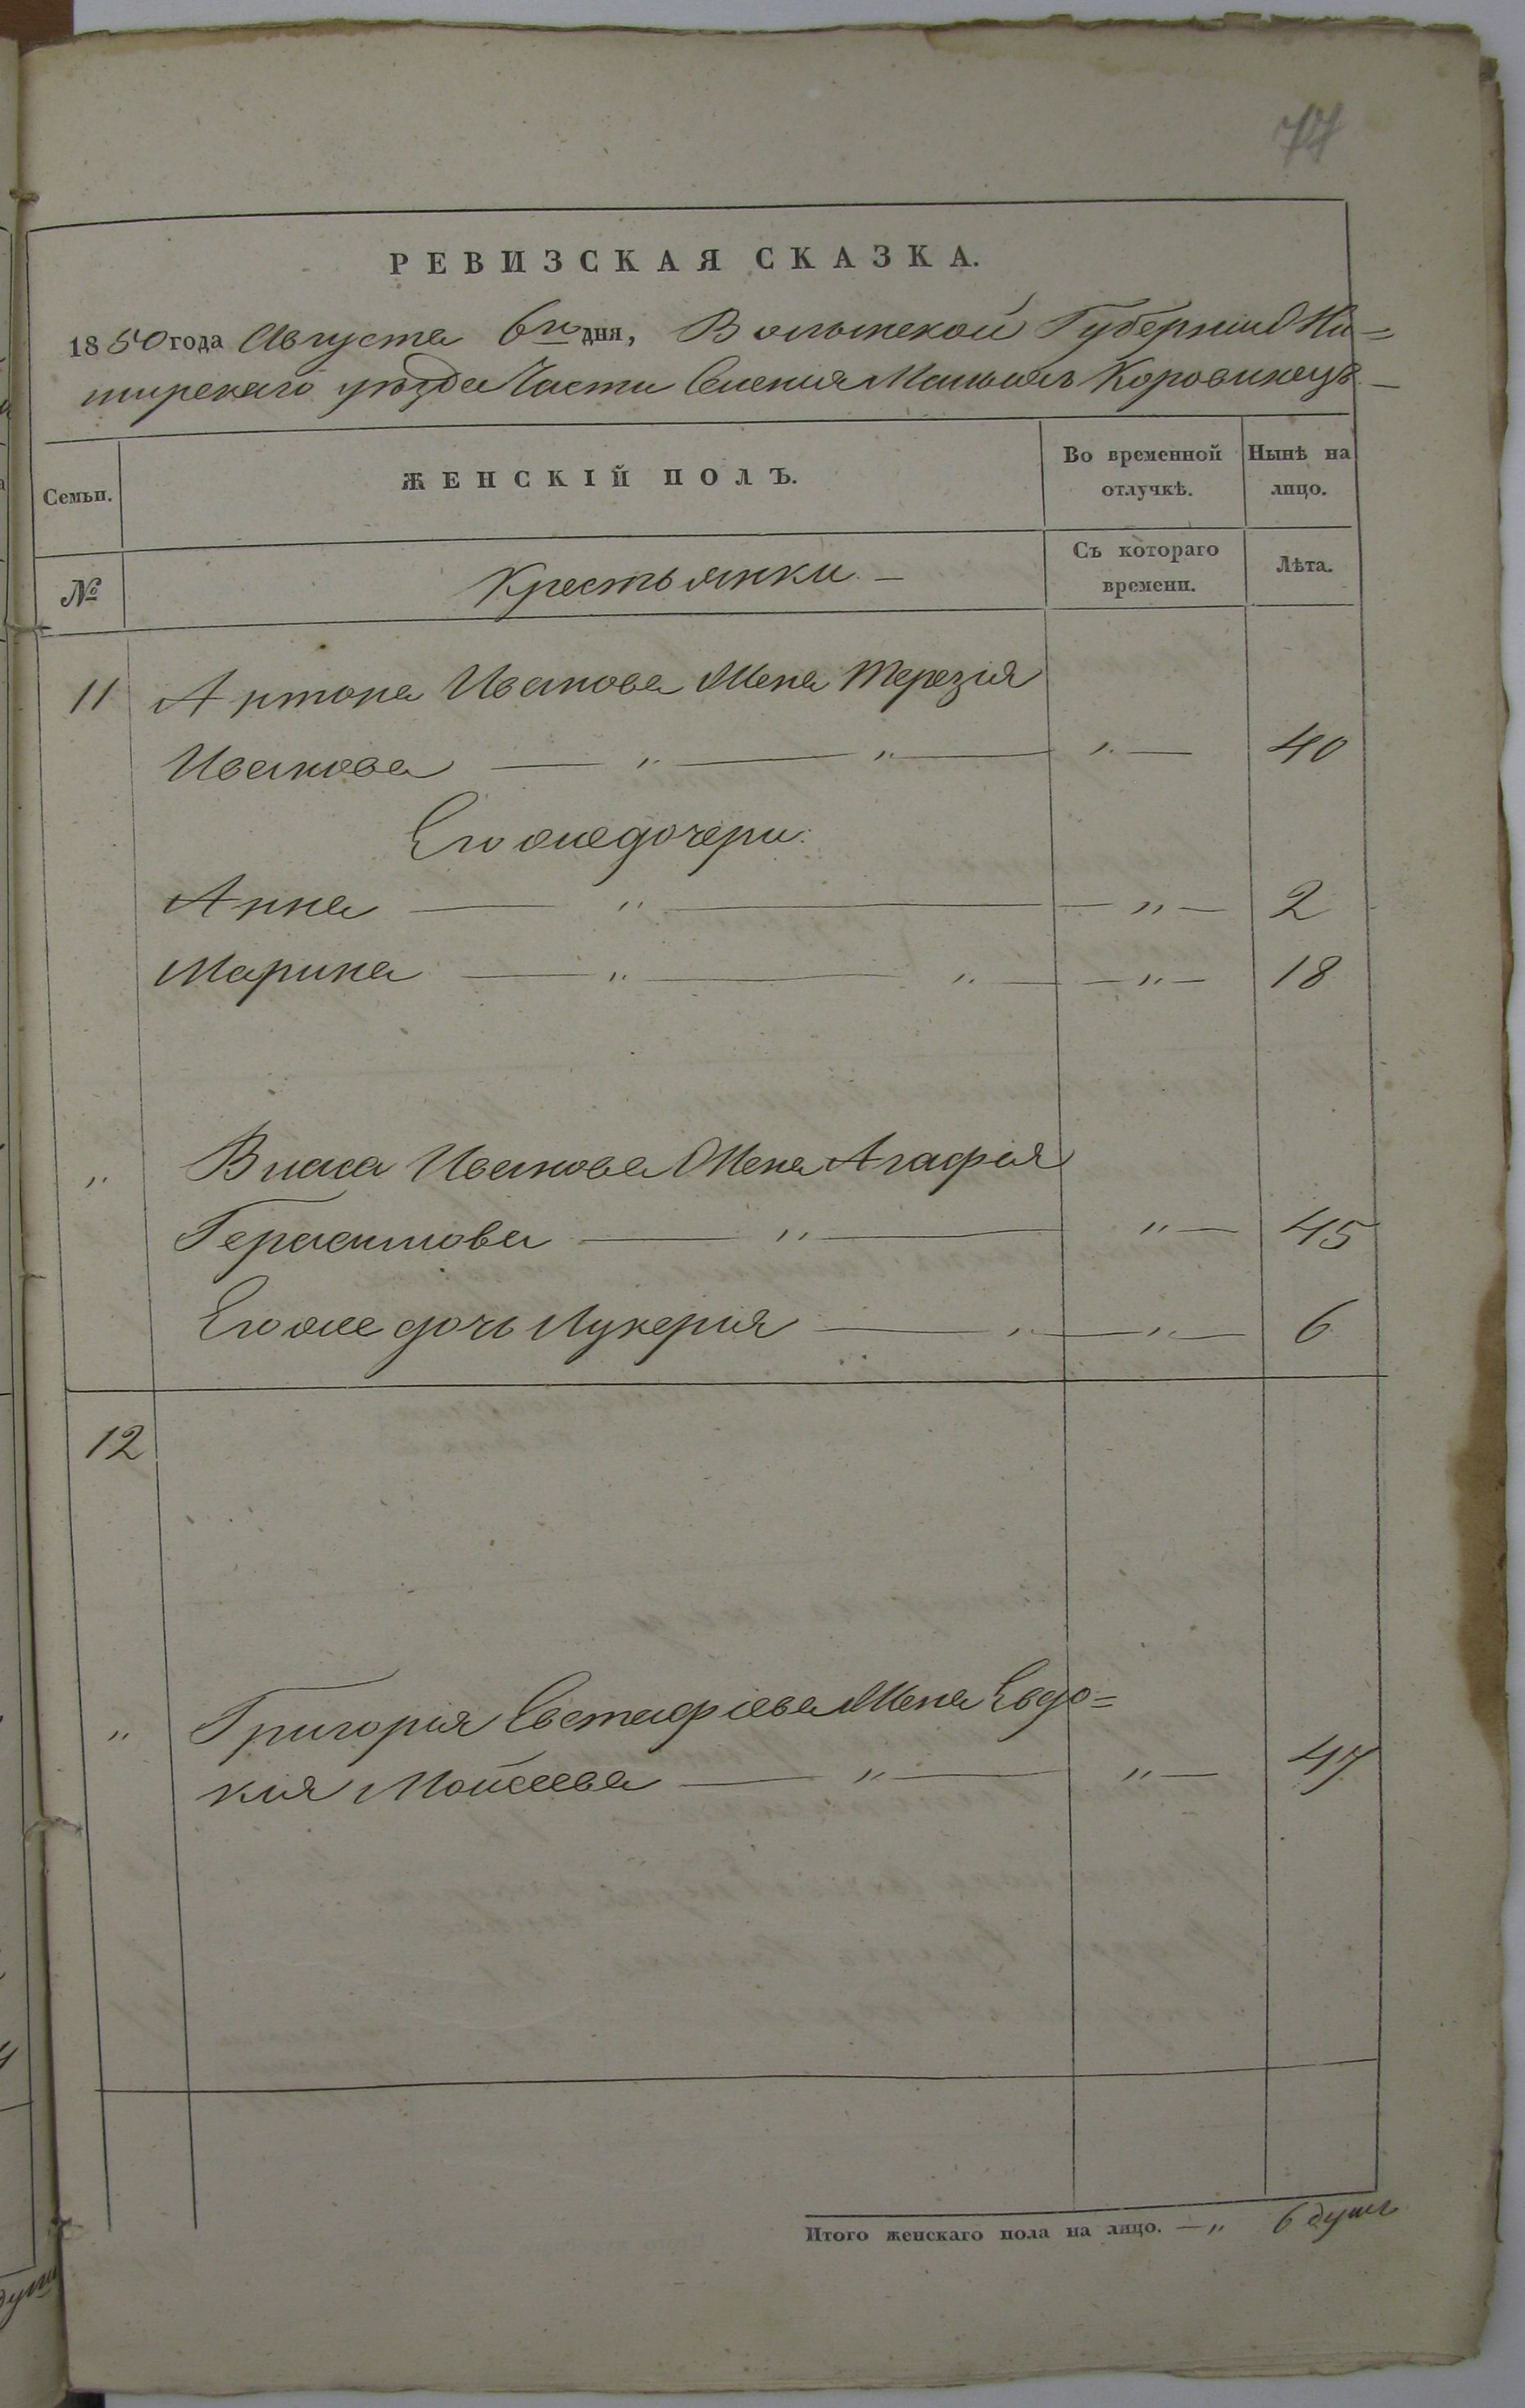 77
РЕВИЗСКАЯ СКАЗКА.
1850 года Августа 6го дня, Волынской Губерніи Жи=
тирскаго уѣзда Части Селенія Малыхъ Коровинецъ —
Семьи.
ЖЕНСКІЙ ПОЛЪ.
Во временной отлучкѣ.
Нынѣ на лицо.
№
Крестьянки —
Съ котораго времени.
Лѣта.
11 Антона Иванова Жена Терезія
Иванова — " — " — " — 40
Его же дочери:
Анна — " — " — 2
Марина — " — " — " — 18
" Власа Иванова Жена Агафія
Герасимова — " — " — 45
Его же дочь Лукерія — " — " — 6
12
" Григорія Евстафіева Жена Евдо=
кія Моисеева — " — " — 47
Итого женскаго пола на лицо. — " 6 душъ